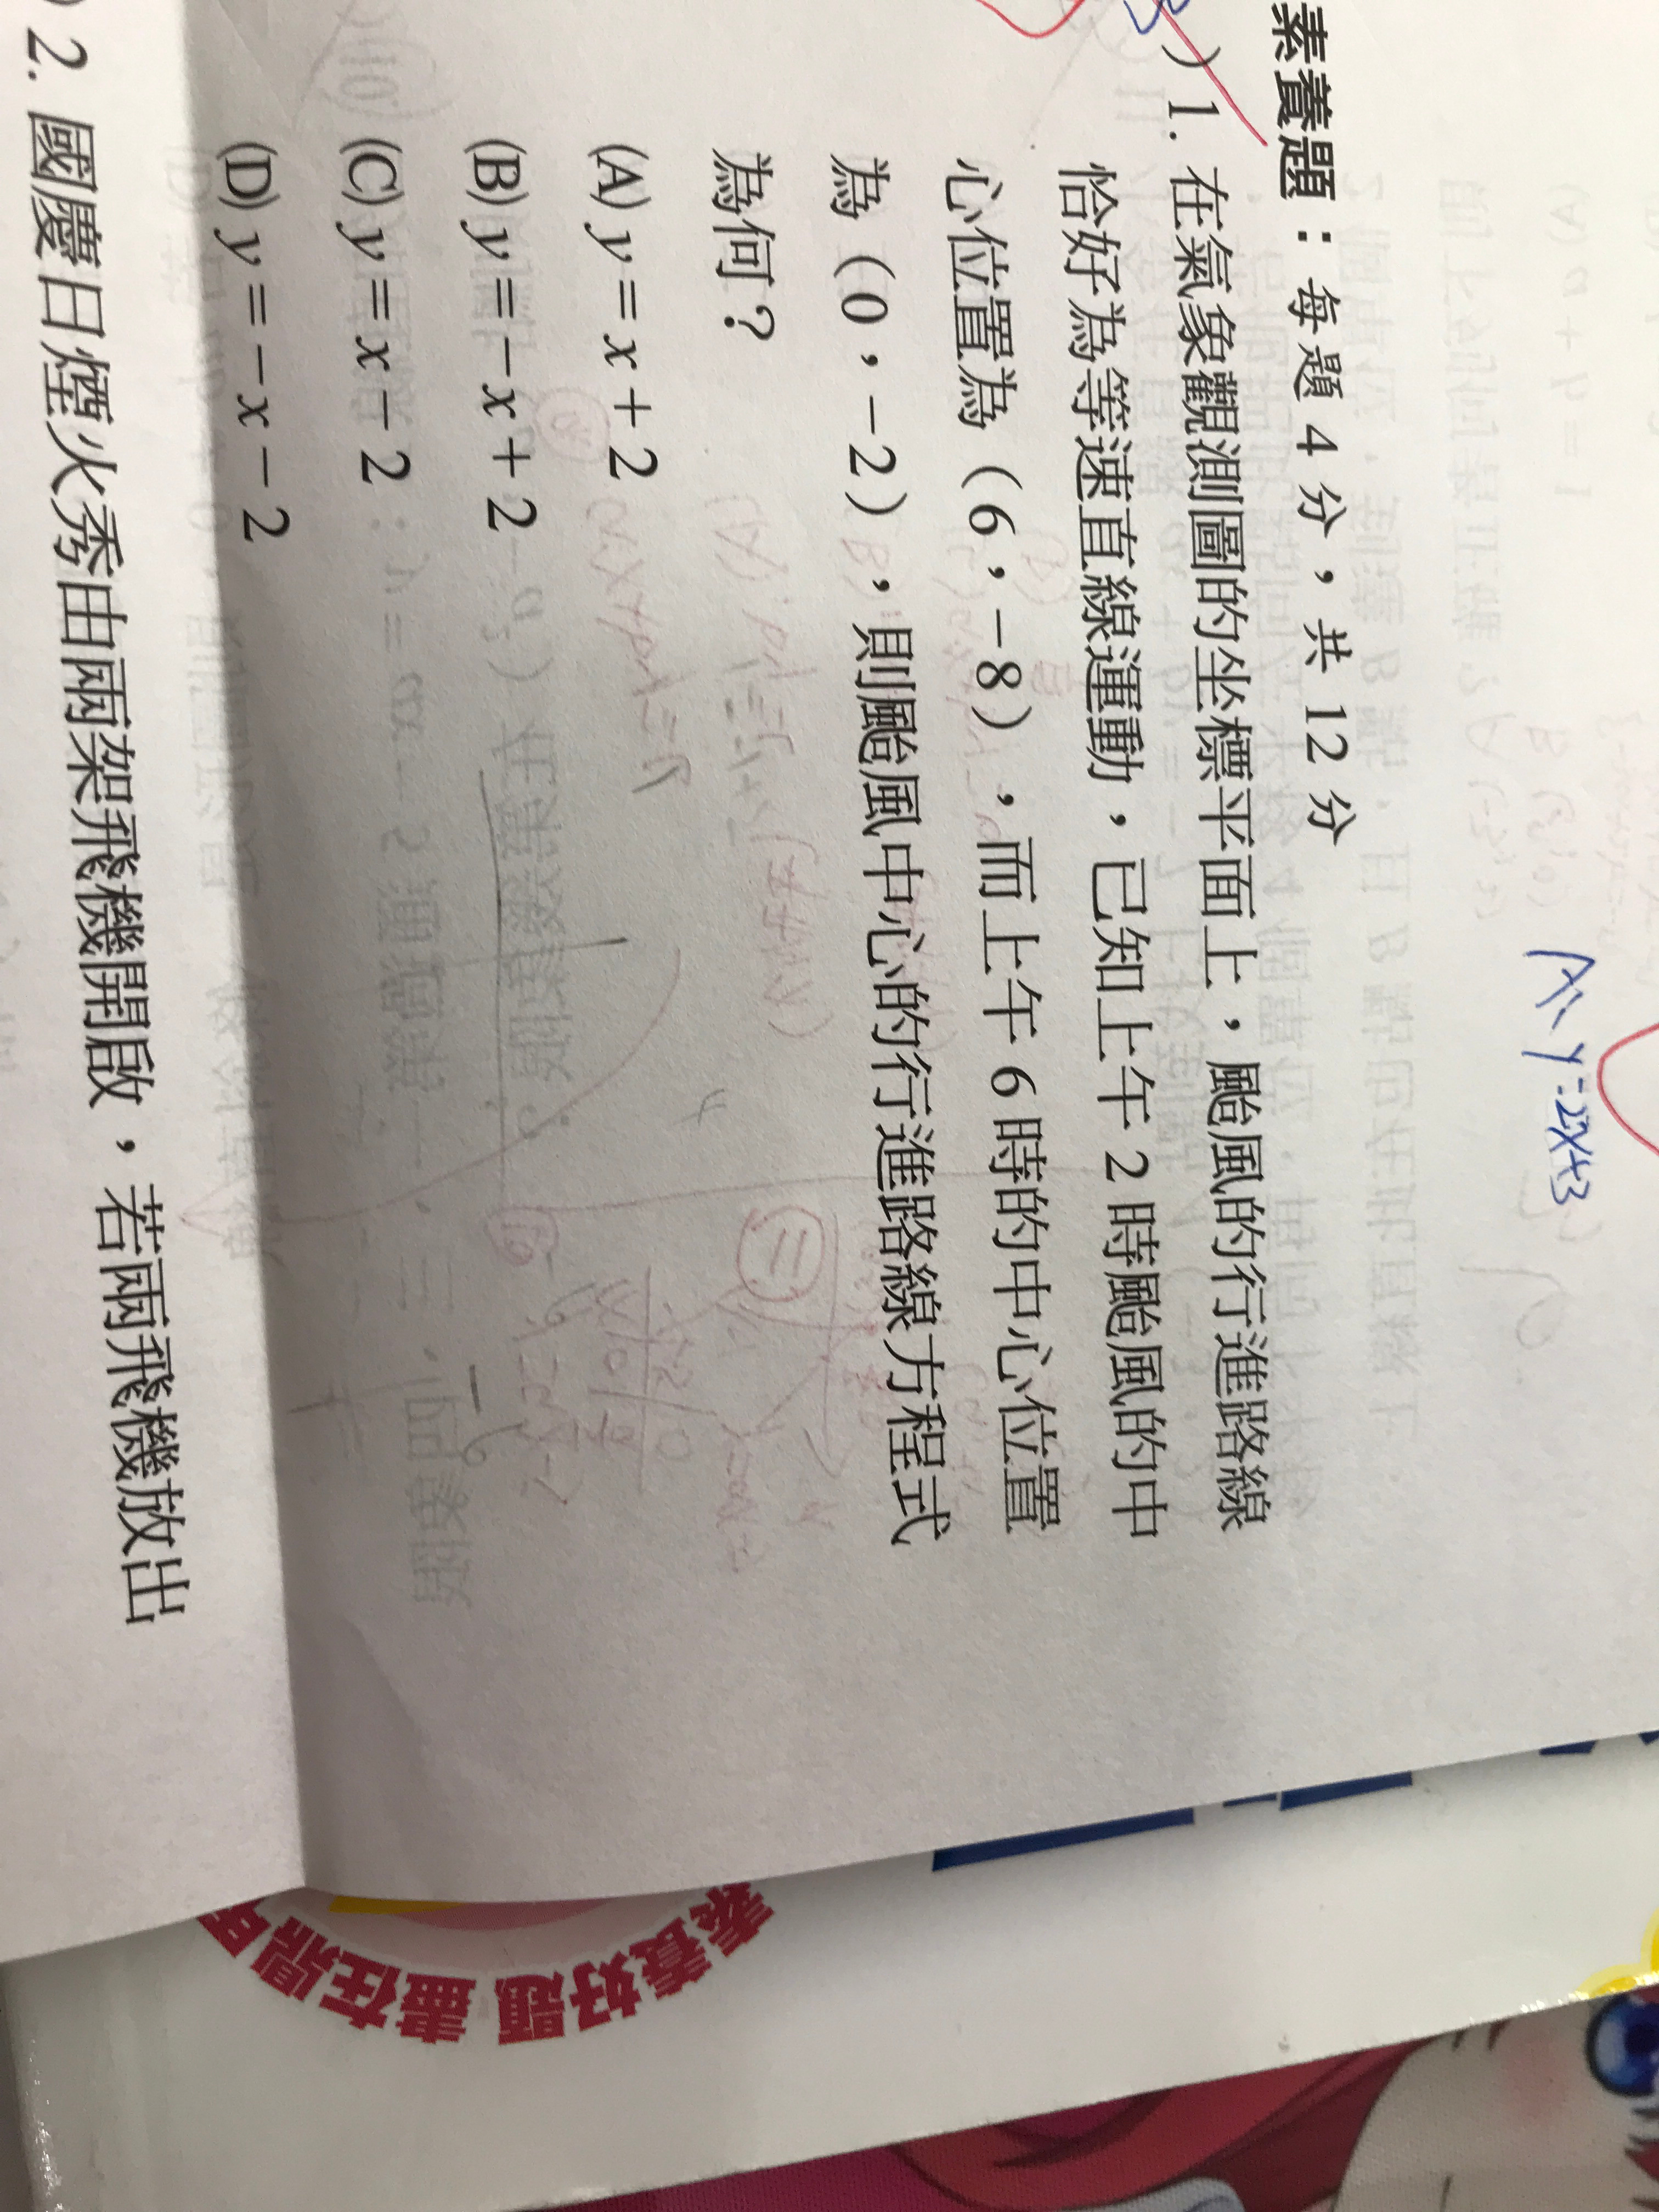 素養題：每題 4 分，共 12 分
) 1. 在氣象觀測圖的坐標平面上，颱風的行進路線
恰好為等速直線運動，已知上午 2 時颱風的中
心位置為（6，－8），而上午 6 時的中心位置
為（0，－2），則颱風中心的行進路線方程式
為何？
(A) y＝x＋2
(B) y＝－x＋2
(C) y＝x－2
(D) y＝－x－2
) 2. 國慶日煙火秀由兩架飛機開啟，若兩飛機放出
y=2x+3
素養好題 盡在鼎